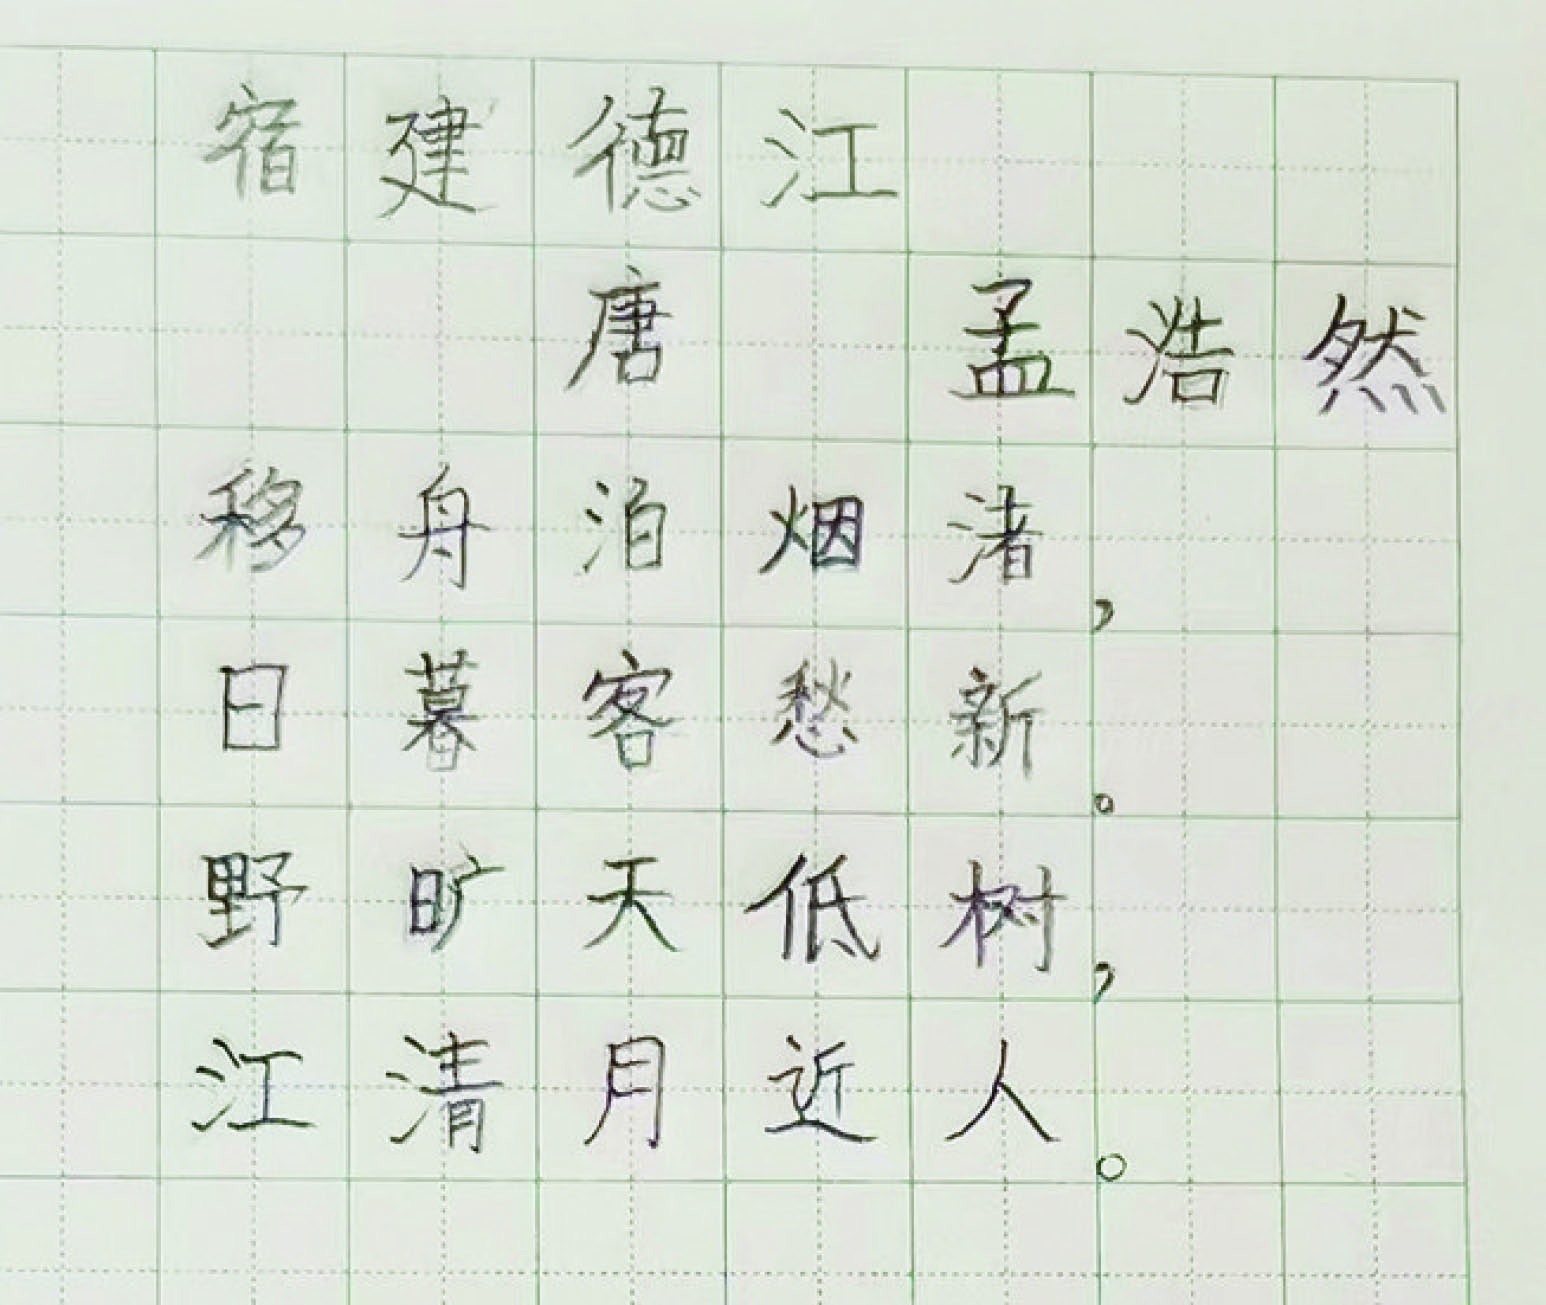 宿建德江
唐 孟浩然
移舟泊烟渚，
日暮客愁新。
野旷天低树，
江清月近人。